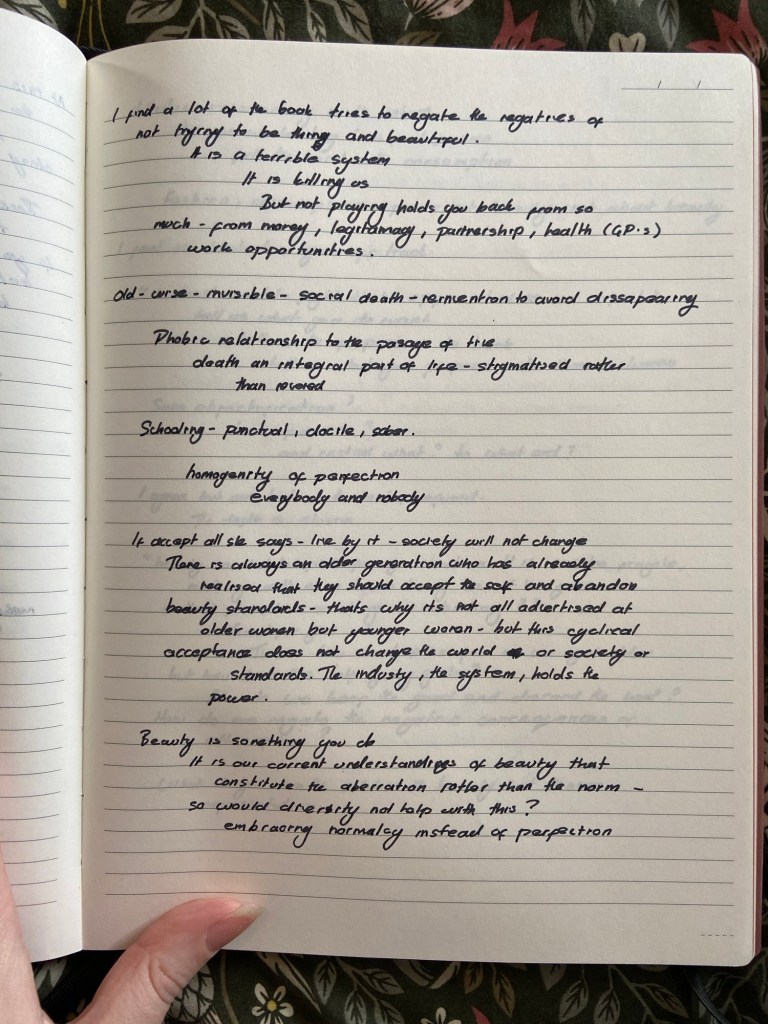 I find a lot of the book tries to negate the negatives of
not trying to be thing and beautiful.
It is a terrible system
It is killing us
But not playing holds you back from so
much - from money, legitamacy, partnership, health (GP.s)
work opportunities.
old - curse - invisible - social death - reinvention to avoid dissapearing
Phobic relationship to the pasage of time
death an integral part of life - stigmatised rather
than revered
Schooling - punctual, docile, sober.
homogenity of perfection
everybody and nobody
If accept all she says - live by it - society will not change
There is always an older generation who has already
realised that they should accept the self and abandon
beauty standards - thats why its not all advertised at
older women but younger women - but this cyclical
acceptance does not change the world or society or
standards. The industy, the system, holds the
power.
Beauty is something you do
It is our current understandings of beauty that
constitute the aberration rather than the norm -
so would diversity not help with this?
embracing normalcy instead of perfection